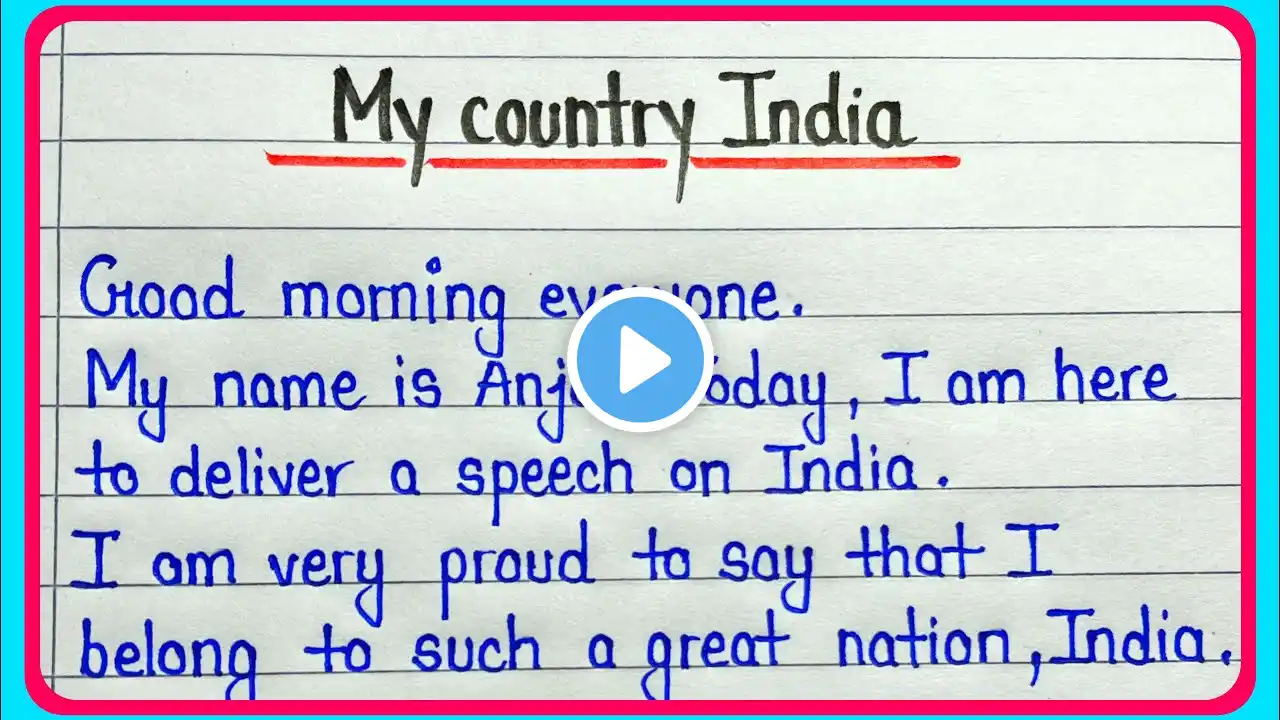 My country India
Good morning everyone.
My name is Today, I am here
to deliver a speech on India.
I am very proud to say that I
belong to such a great nation, India.